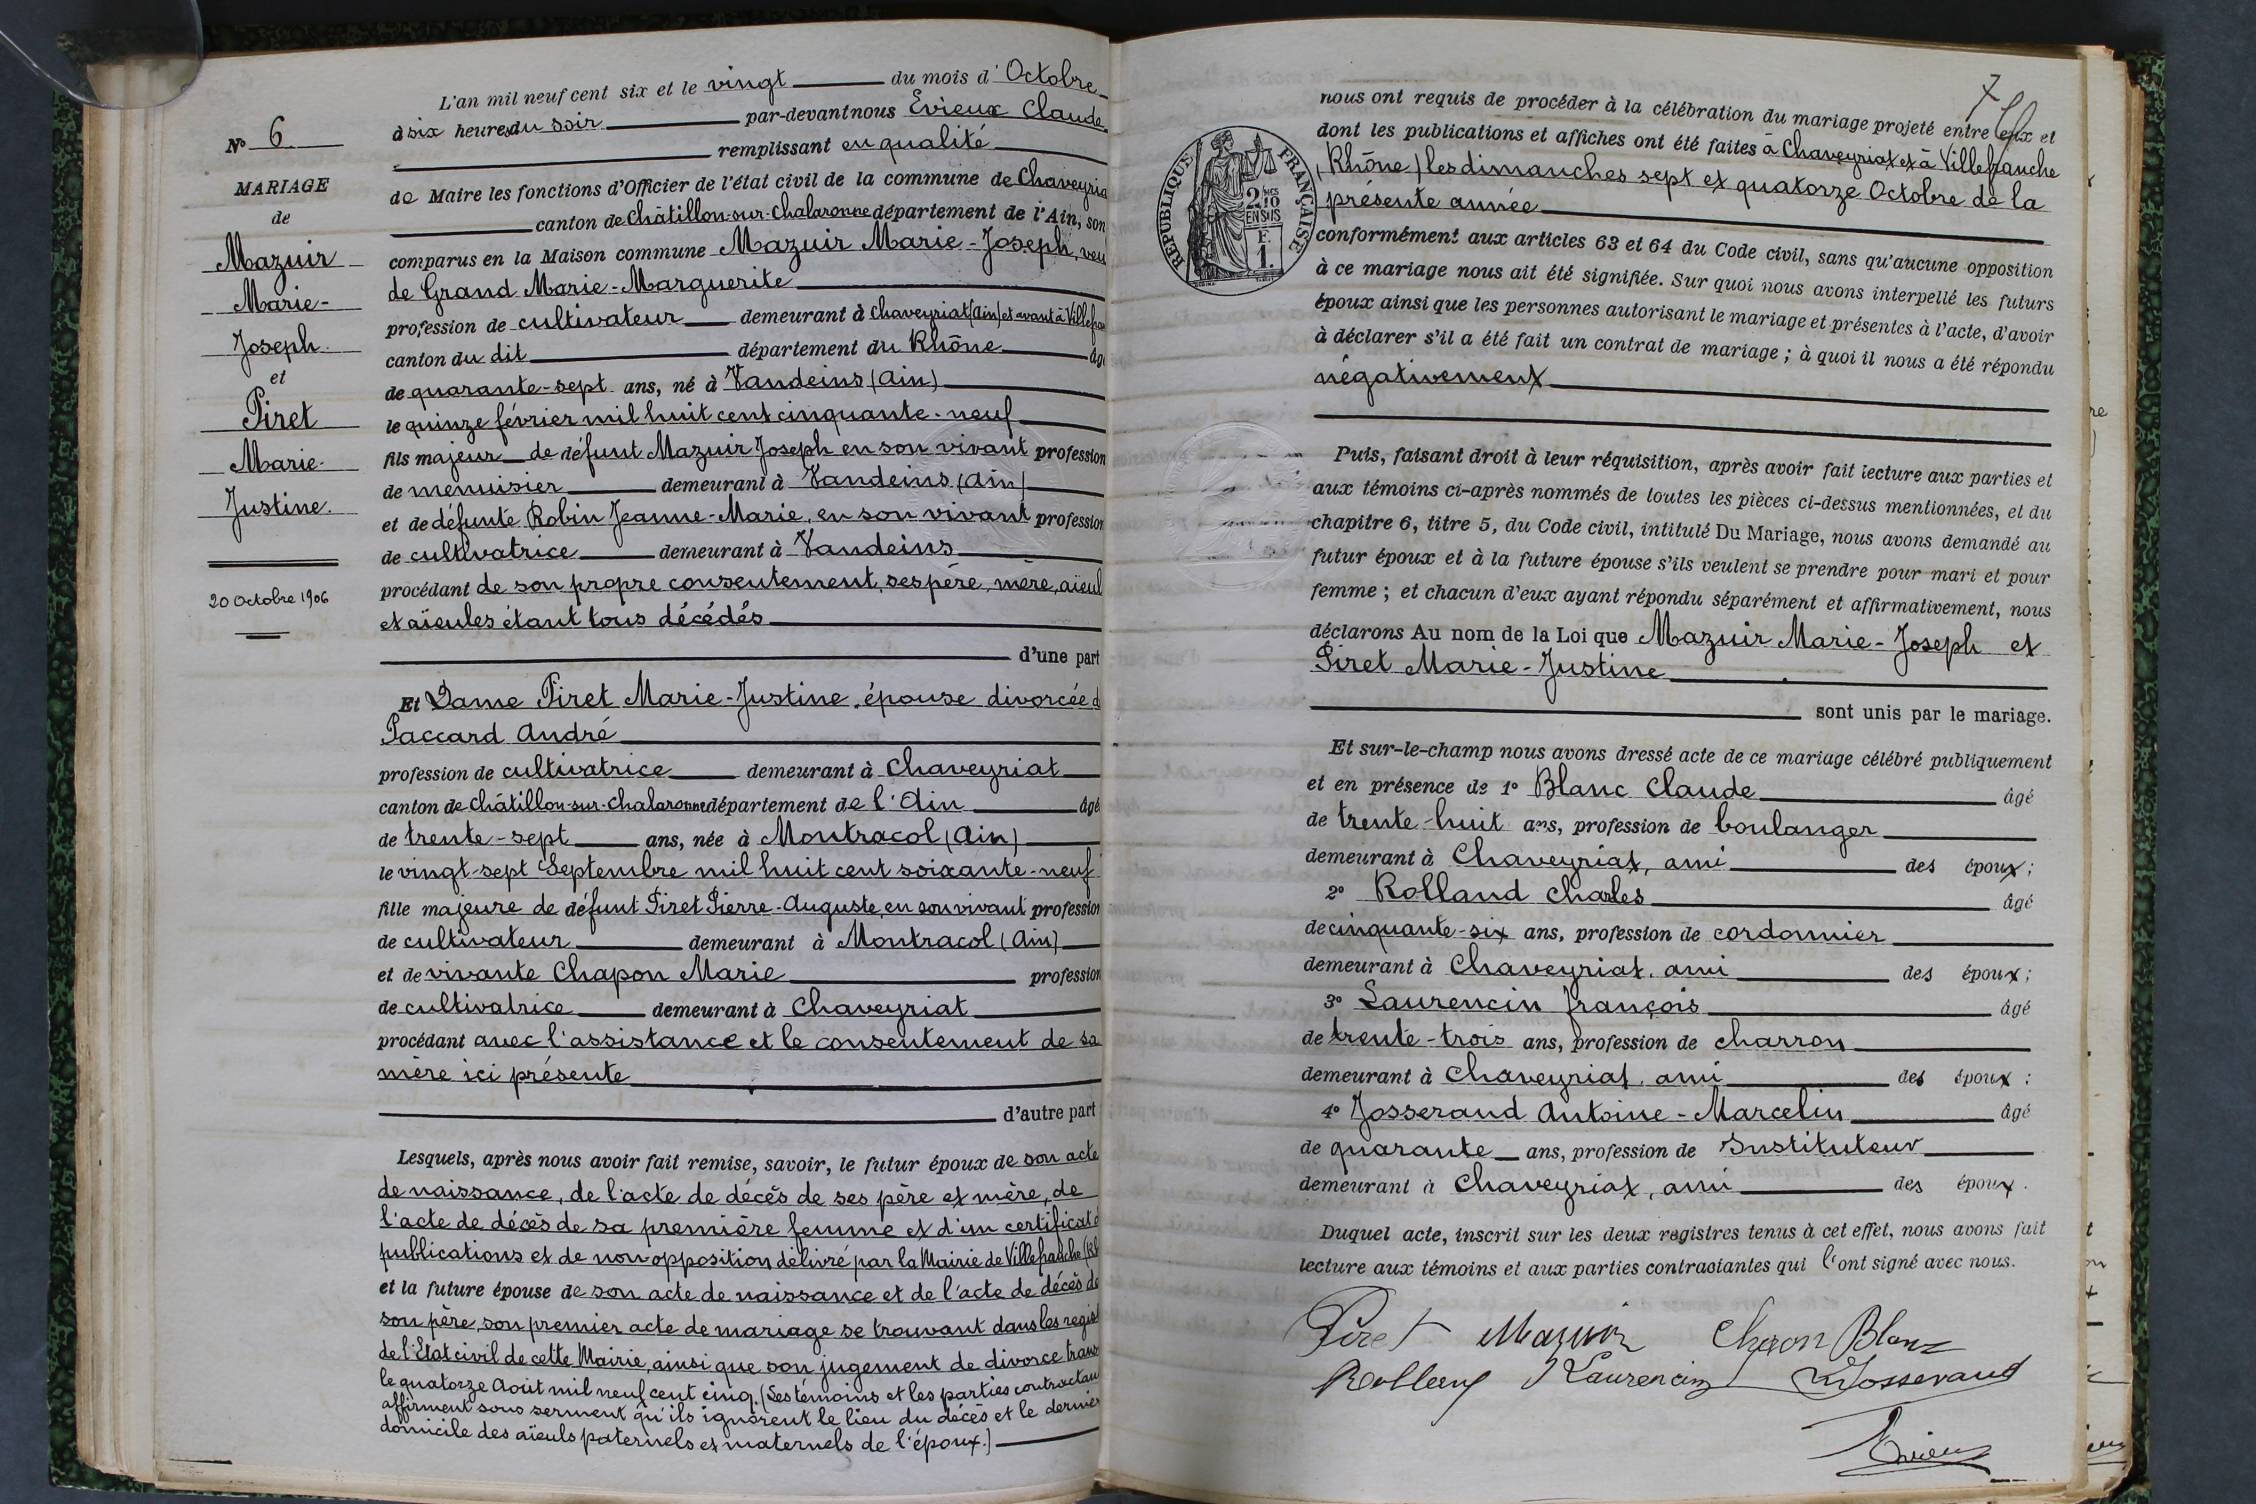 N° 6
MARIAGE
de
Mazuir
Marie-
Joseph
et
Piret
Marie-
Justine
20 Octobre 1906
L'an mil neuf cent six et le vingt du mois d'Octobre
à six heures du soir par-devant nous Evieux Claude
remplissant en qualité
de Maire les fonctions d'Officier de l'état civil de la commune de Chaveyria
canton de Châtillon-sur-Chalaronne département de l'Ain, son
comparus en la Maison commune Mazuir Marie-Joseph, veu
de Grand Marie-Marguerite
profession de cultivateur demeurant à Chaveyriat (Ain) et avant à Villefra
canton du dit département du Rhône âg
de quarante-sept ans, né à Vandeins (Ain)
le quinze février mil huit cent cinquante-neuf
fils majeur de défunt Mazuir Joseph en son vivant profession
de menuisier demeurant à Vandeins (Ain)
et de défunte Robin Jeanne-Marie, en son vivant profession
de cultivatrice demeurant à Vandeins
procédant de son propre consentement, ses père, mère, aïeul
et aïeules étant tous décédés
d'une part
Et Dame Piret Marie-Justine, épouse divorcée d
Paccard André
profession de cultivatrice demeurant à Chaveyriat
canton de Châtillon-sur-Chalaronne département de l'Ain âgé
de trente-sept ans, née à Montracol (Ain)
le vingt-sept Septembre mil huit cent soixante-neuf
fille majeure de défunt Piret Pierre-Auguste, en son vivant profession
de cultivateur demeurant à Montracol (Ain)
et de vivante Chapon Marie profession
de cultivatrice demeurant à Chaveyriat
procédant avec l'assistance et le consentement de sa
mère ici présente
d'autre part
Lesquels, après nous avoir fait remise, savoir, le futur époux de son acte
de naissance, de l'acte de décès de ses père et mère, de
l'acte de décès de sa première femme et d'un certificat d
publications et de non opposition délivré par la Mairie de Villefranche (Rh
et la future épouse de son acte de naissance et de l'acte de décès de
son père, son premier acte de mariage se trouvant dans les regist
de l'Etat civil de cette Mairie, ainsi que son jugement de divorce trans
le quatorze Août mil neuf cent cinq. (Les témoins et les parties contractan
affirment sous serment qu'ils ignorent le lieu du décès et le dernier
domicile des aïeuls paternels et maternels de l'époux.)
7
nous ont requis de procéder à la célébration du mariage projeté entre eux et
dont les publications et affiches ont été faites à Chaveyriat et à Villefranche
(Rhône) les dimanches sept et quatorze Octobre de la
présente année
RÉPUBLIQUE FRANÇAISE
2/10
EN SUS
F.
1.
conformément aux articles 63 et 64 du Code civil, sans qu'aucune opposition
à ce mariage nous ait été signifiée. Sur quoi nous avons interpellé les futurs
époux ainsi que les personnes autorisant le mariage et présentes à l'acte, d'avoir
à déclarer s'il a été fait un contrat de mariage ; à quoi il nous a été répondu
négativement
Puis, faisant droit à leur réquisition, après avoir fait lecture aux parties et
aux témoins ci-après nommés de toutes les pièces ci-dessus mentionnées, et du
chapitre 6, titre 5, du Code civil, intitulé Du Mariage, nous avons demandé au
futur époux et à la future épouse s'ils veulent se prendre pour mari et pour
femme ; et chacun d'eux ayant répondu séparément et affirmativement, nous
déclarons Au nom de la Loi que Mazuir Marie-Joseph et
Piret Marie-Justine
sont unis par le mariage.
Et sur-le-champ nous avons dressé acte de ce mariage célébré publiquement
et en présence de 1° Blanc Claude âgé
de trente-huit ans, profession de boulanger
demeurant à Chaveyriat, ami des époux ;
2° Rolland Charles âgé
de cinquante-six ans, profession de cordonnier
demeurant à Chaveyriat, ami des époux ;
3° Laurencin François âgé
de trente-trois ans, profession de charron
demeurant à Chaveyriat, ami des époux ;
4° Josserand Antoine-Marcelin âgé
de quarante ans, profession de Instituteur
demeurant à Chaveyriat, ami des époux.
Duquel acte, inscrit sur les deux registres tenus à cet effet, nous avons fait
lecture aux témoins et aux parties contractantes qui l'ont signé avec nous.
Piret Mazuir Chapon Blanc
Rolland Laurencin Josserand
Evieux